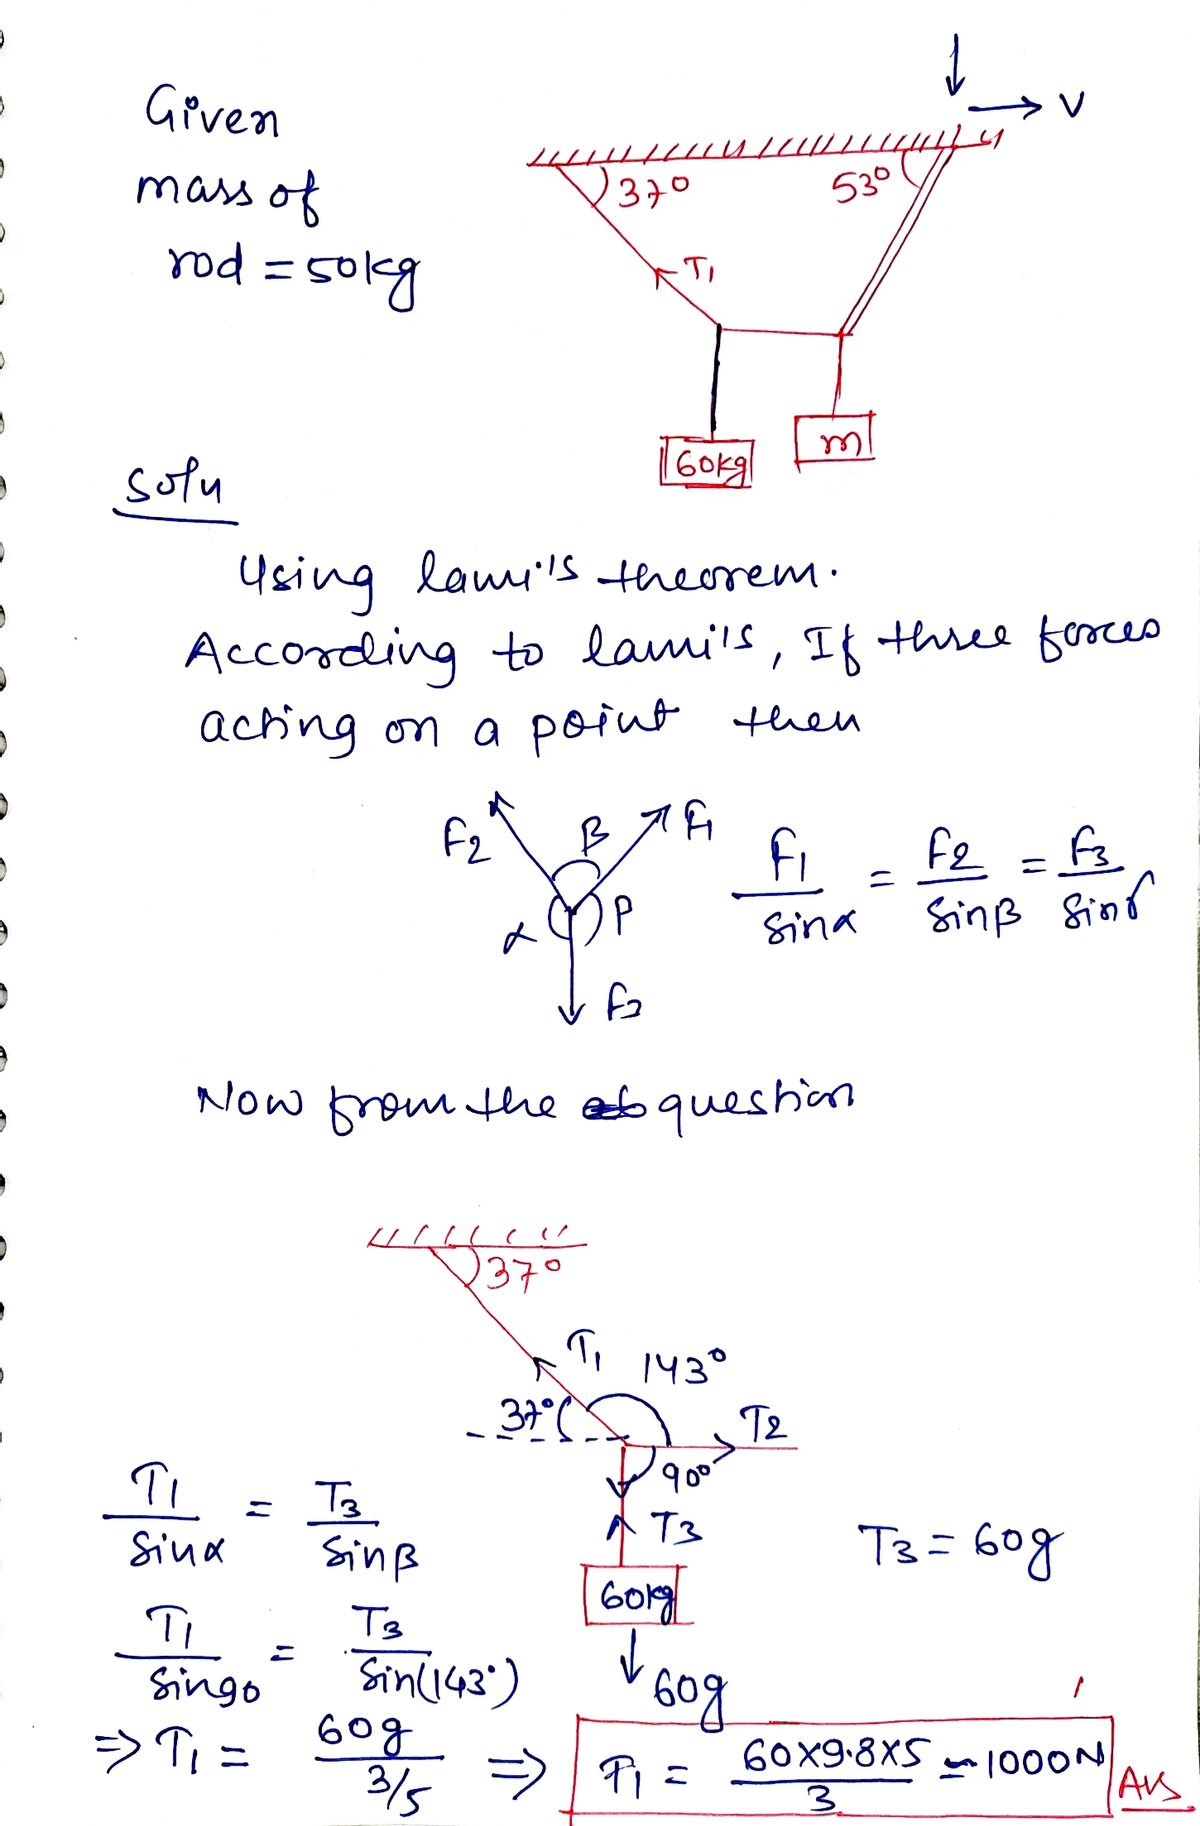 Given
mass of
rod = 50kg
V
37°
53°
T₁
60kg
m
Soln
Using lami's theorem.
According to lami's, If three forces
acting on a point then
F₂ β F₁
α P
F₃
F₁/sinα = F₂/sinβ = F₃/sinγ
Now from the question
37°
T₁ 143°
37° T₂
90°
T₃
60kg
60g
T₃ = 60g
T₁/sinα = T₃/sinβ
T₁/sin90 = T₃/sin(143°)
⇒ T₁ = 60g/3/5 ⇒ T₁ = 60×9.8×5/3 ≃ 1000N Ans